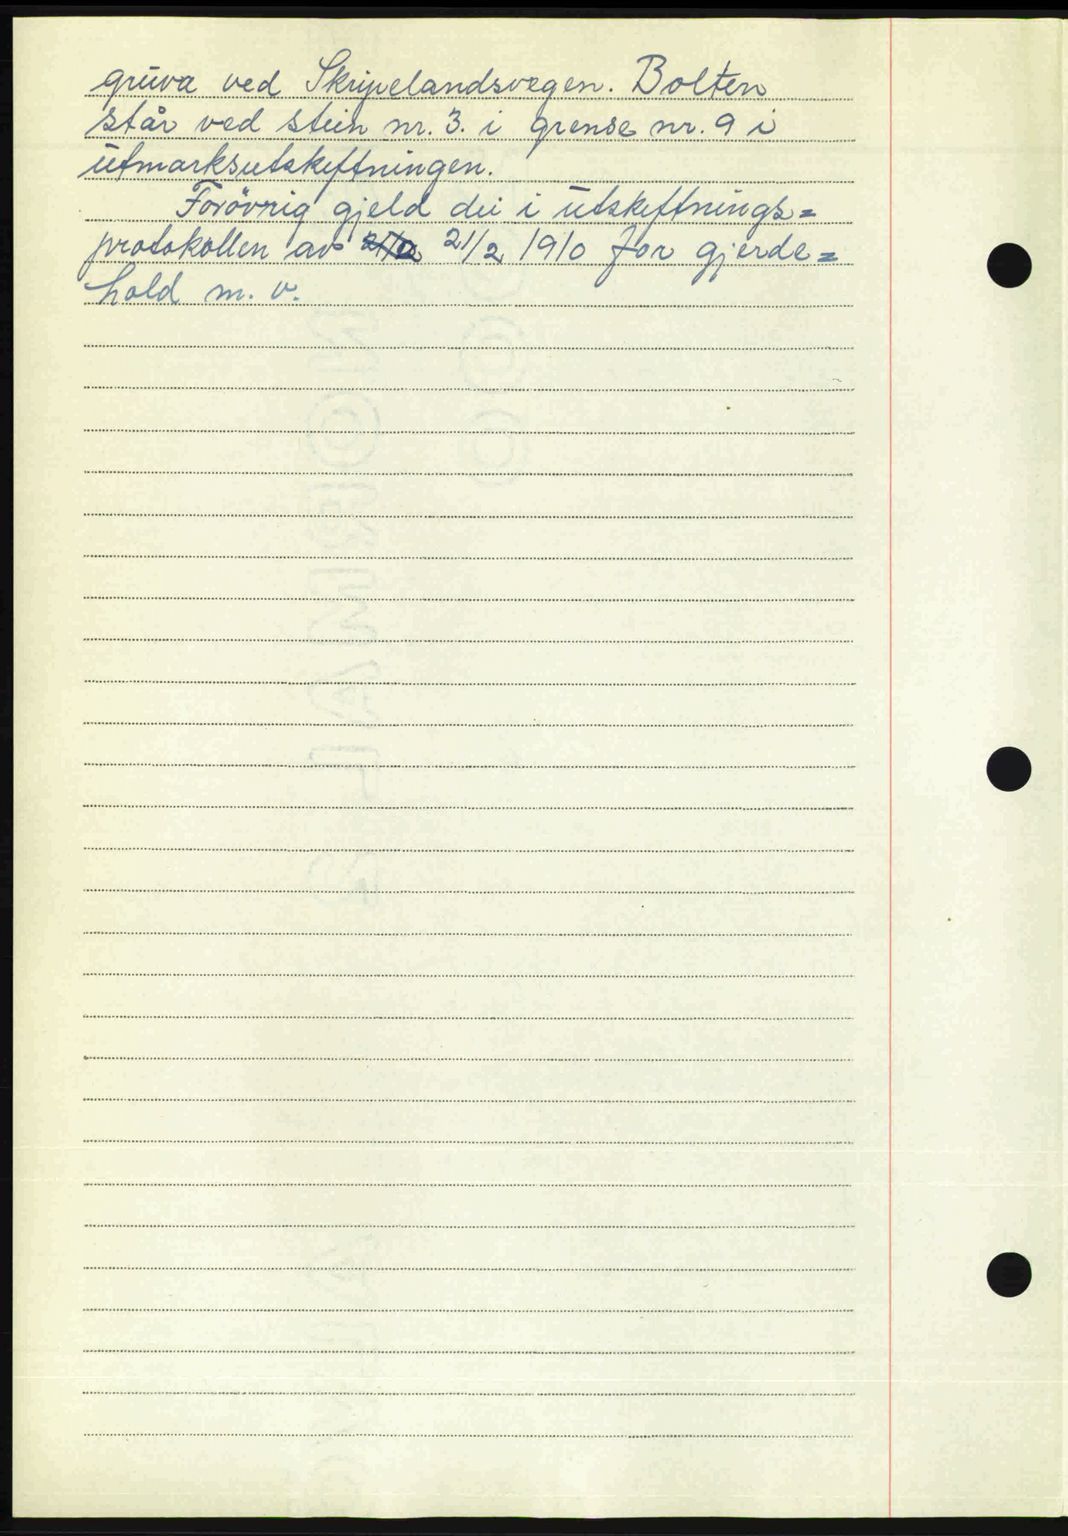 gruva ved Skripelandsvegen. Bolten
står ved stein nr. 3. i grense nr. 9 i
utmarksutskiftningen.
Forövrig gjeld dei i utskiftnings=
protokollen av 21/2 1910 for gjerde=
hold m. v.